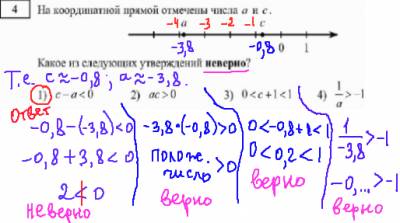 4 На координатной прямой отмечены числа a и c.
-4 a -3 -2 -1 c
-3,8 -0,8 0 1
Какое из следующих утверждений неверно?
Т.е. c ≈ -0,8 ; a ≈ -3,8.
1) c – a < 0 2) ac > 0 3) 0 < c + 1 < 1 4) 1/a > –1
ответ
-0,8-(-3,8)<0 -3,8·(-0,8)>0 0<-0,8+1<1 1/-3,8 >-1
-0,8+3,8<0 полож. число >0 0<0,2<1 -0,...>-1
2<0 верно верно верно
неверно